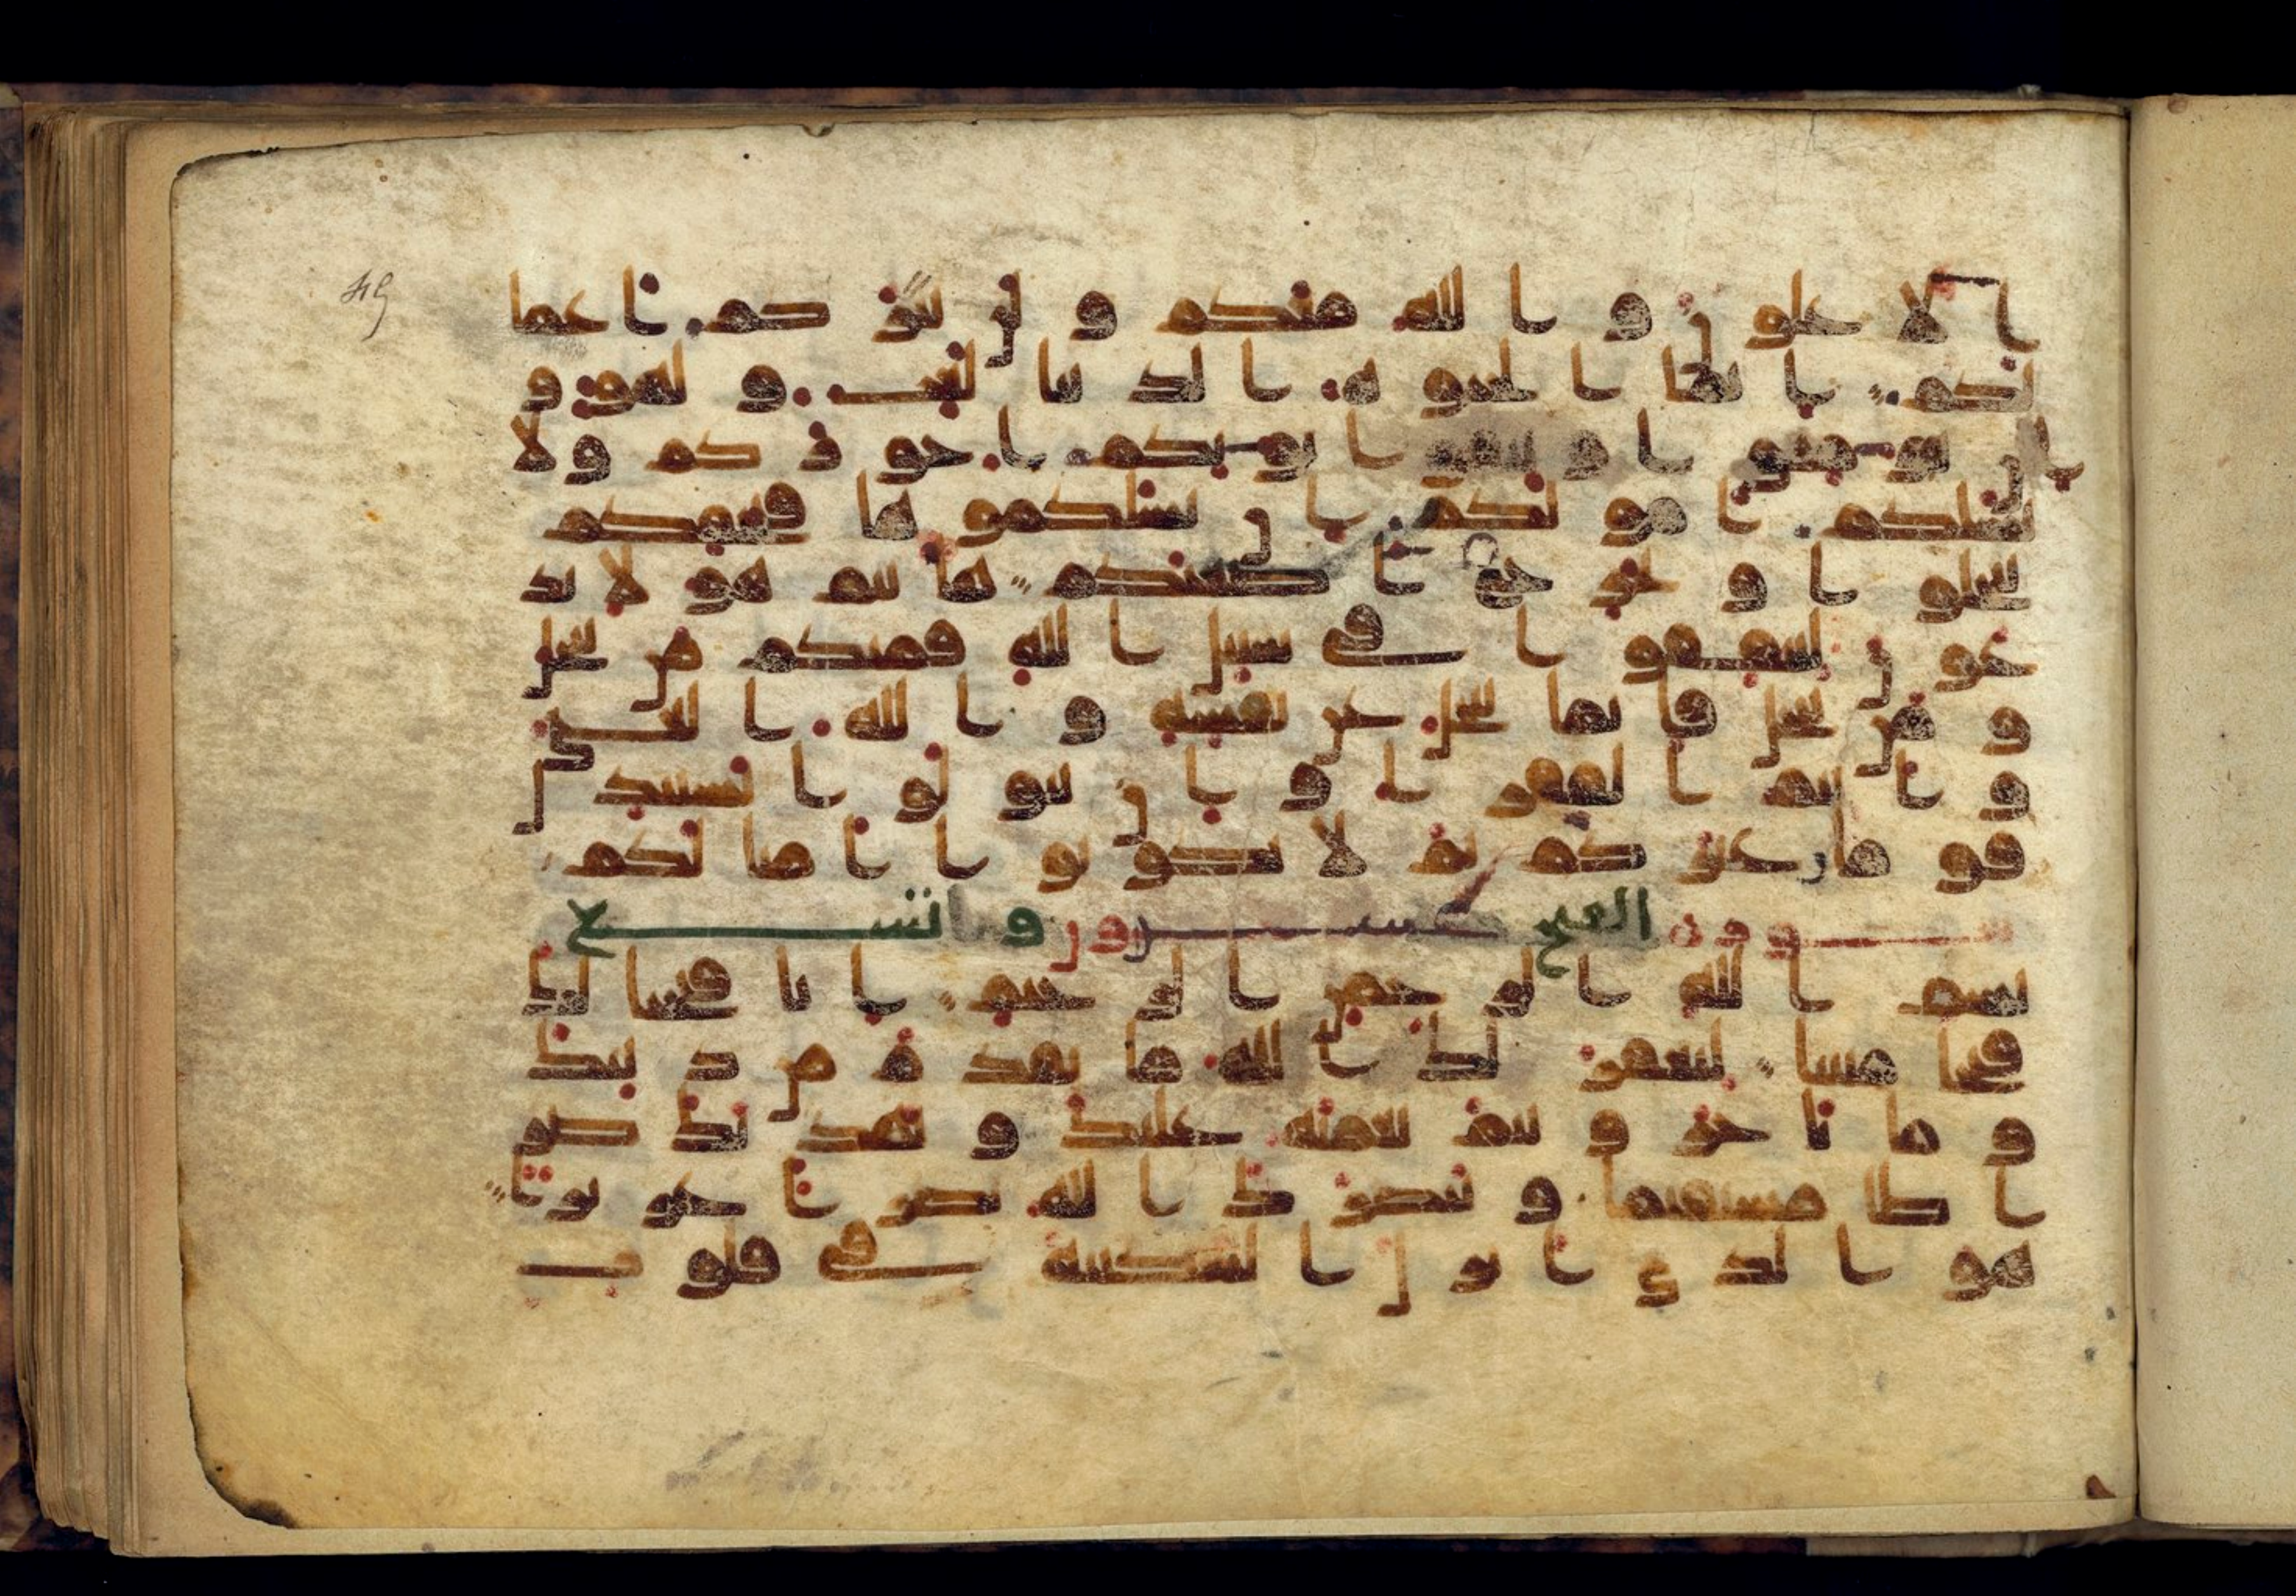 49
الاعلون والله معكم ولن يتركم اعما
لكم انما الحيوه الدنيا لعب ولهو و
ان تومنوا وتتقوا يوتكم اجوركم ولا
يسلكم امولكم ان يسلكموها فيحفكم
تبخلوا ويخرج اضغنكم هانتم هولا تد
عون لتنفقوا في سبيل الله فمنكم من يبخل
و من يبخل فانما يبخل عن نفسه والله الغني
وانتم الفقرا وان تتولوا يستبدل
قوما غيركم ثم لا يكونوا امثلكم
الفتح عشرون وتسع
بسم الله الرحمن الرحيم انا فتحنا لك
فتحا مبينا ليغفر لك الله ما تقدم من ذنبك
و ما تاخر ويتم نعمته عليك و يهديك صر
اطا مستقيما وينصرك الله نصرا عزيزا
هو الذي انزل السكينه في قلوب